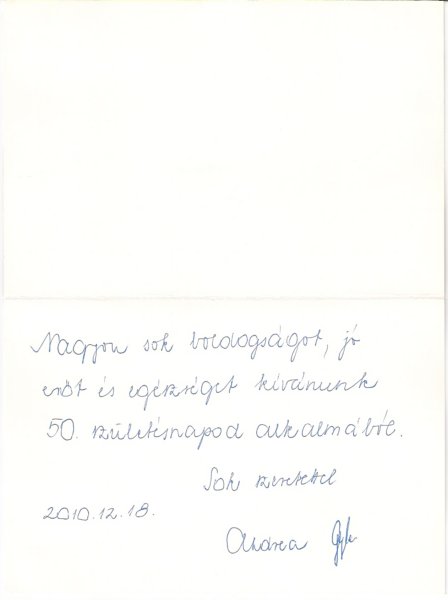 Nagyon sok boldogságot, jó
erőt és egészséget kívánunk
50. születésnapod alkalmából.
Sok szeretettel
2010.12.18.
Andrea